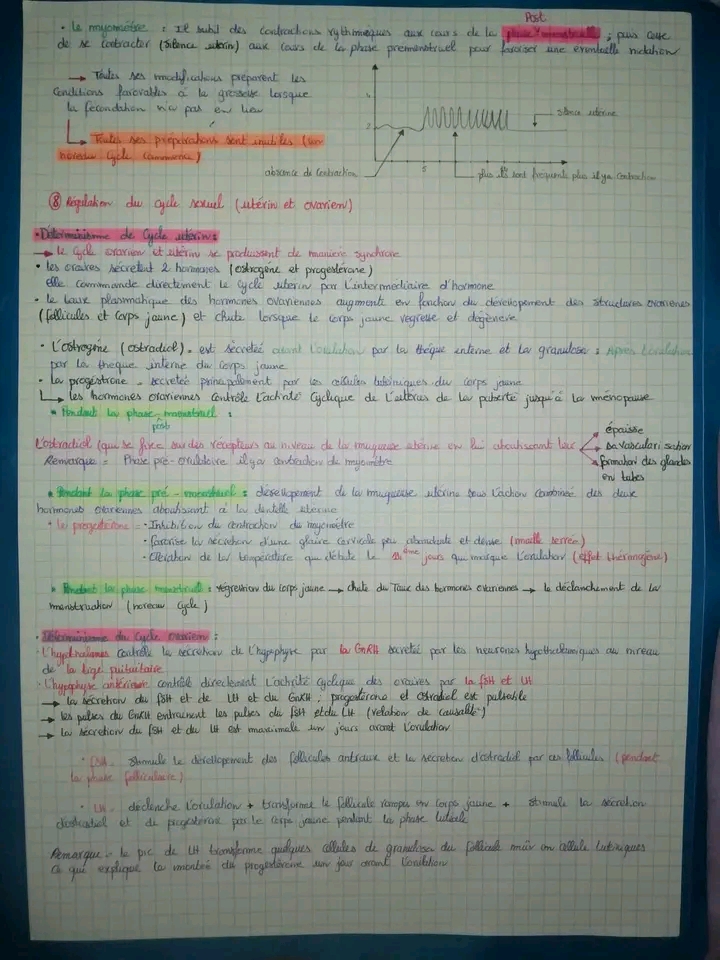 Post
• Le myomètre : Il subit des contractions rythmiques aux cours de la phase menstruel ; puis cesse
de se contracter (Silence utérin) aux cours de la phase premenstruel pour favoriser une éventuelle nidation
→ Toutes ses modifications préparent les
conditions favorables à la grossesse lorsque
la fécondation n'a pas eu lieu
→ Toutes ses préparations sont inutiles (un
nouveau cycle commence)
silence utérine
absence de contraction
5
plus fréquente plus il y a contraction
⑧ Régulation du cycle sexuel (utérin et ovarien)
• Déterminisme de Cycle utérin :
→ le cycle ovarien et utérin se produissent de manière synchrone
• les ovaires sécrètent 2 hormones (ostrogène et progestérone)
elle commande directement le cycle utérin par l'intermédiaire d'hormone
• le taux plasmatique des hormones ovariennes augmente en fonction du développement des structures ovariennes
(follicules et corps jaune) et chute lorsque le corps jaune régresse et dégénère
• L'ostrogène (ostradiol) = est secretée avant l'ovulation par la thèque interne et la granulosa ; Après l'ovulation
par la thèque interne du corps jaune
• La progéstrone = secretée principalement par les cellules lutéiniques du corps jaune
→ les hormones ovariennes contrôle l'activité cyclique de l'utérus de la puberté jusqu'à la ménopause
• Pendant la phase menstruel :
post
L'ostradiol (qui se fixe sur des récepteurs au niveau de la muqueuse utérine en lui aboutissant leur
épaisse
sa vascularisation
formation des glandes
en tubes
Remarque = Phase pré-ovulatoire il y a contraction de myomètre
• Pendant la phase pré-menstruel : développement de la muqueuse utérine sous l'action combinée des deux
hormones ovariennes aboutissant à la dentelle utérine
• le progestérone = - Inhibition du contraction du myomètre
- favorise la sécrétion d'une glaire cervicale peu abondante et dense (maille serrée)
- élévation de la température qui débute le ème jours qui marque l'ovulation (effet thérmogène)
• Pendant la phase menstruel : régression du corps jaune → chute du Taux des hormones ovariennes → le déclanchement de la
menstruation (nouveau cycle)
• Déterminisme du Cycle ovarien :
• L'hypothalamus contrôle la sécrétion de l'hypophyse par la GnRH secretée par les neurones hypothalamiques au niveau
de la tige pituitaire
• L'hypophyse antérieur contrôle directement l'activité cyclique des ovaires par la fSH et LH
→ la sécrétion du fSH et de LH et du GnRH ; progestérone et ostradiol est pulsatile
→ les pulses du GnRH entrainent les pulses du fSH et du LH (relation de causalité)
→ la sécrétion du fSH et du LH est maximale un jours avant l'ovulation
• FSH = stimule le développement des follicules antraux et la sécrétion d'ostradiol par ces follicules (pendant
la phase folliculaire)
• LH = déclenche l'ovulation + transforme le follicule rompu en corps jaune + stimule la sécrétion
d'ostradiol et de progestérone par le corps jaune pendant la phase lutéale
Remarque = le pic de LH transforme quelques cellules de granulosa du follicule mûr en cellule lutéiniques
Ce qui explique la montée du progestérone un jour avant l'ovulation